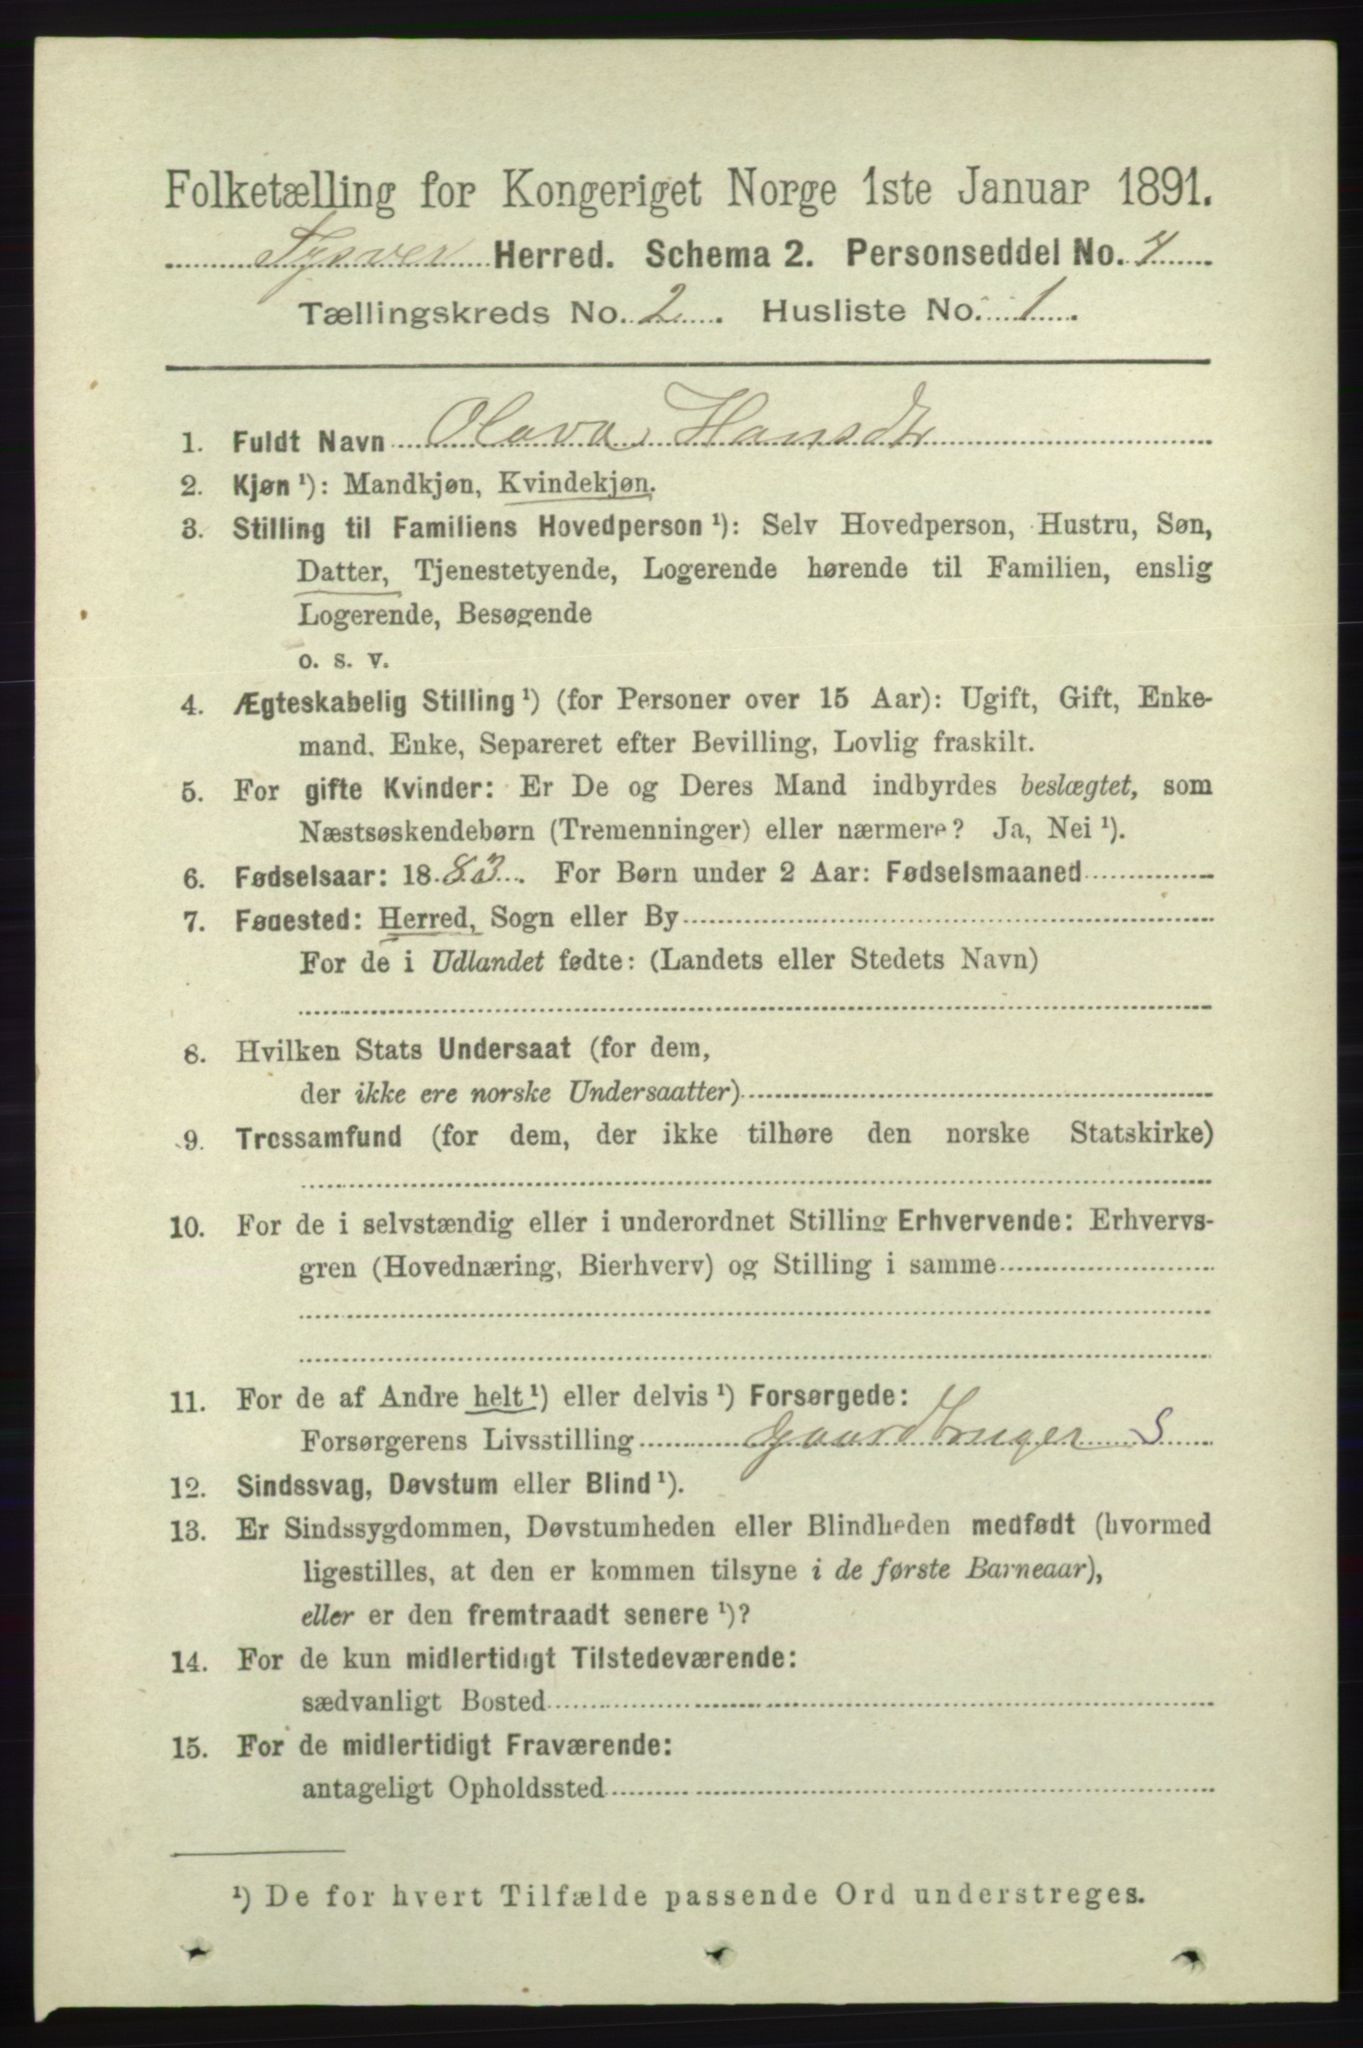 Folketælling for Kongeriget Norge 1ste Januar 1891.
Tysver Herred. Schema 2. Personseddel No. 7
Tællingskreds No. 2. Husliste No. 1.
1. Fuldt Navn Olava Hansdtr
2. Kjøn ¹): Mandkjøn, Kvindekjøn.
3. Stilling til Familiens Hovedperson ¹): Selv Hovedperson, Hustru, Søn,
Datter, Tjenestetyende, Logerende hørende til Familien, enslig
Logerende, Besøgende
o. s. v.
4. Ægteskabelig Stilling ¹) (for Personer over 15 Aar): Ugift, Gift, Enke-
mand, Enke, Separeret efter Bevilling, Lovlig fraskilt.
5. For gifte Kvinder: Er De og Deres Mand indbyrdes beslægtet, som
Næstsøskendebørn (Tremenninger) eller nærmere? Ja, Nei ¹).
6. Fødselsaar: 1883. For Børn under 2 Aar: Fødselsmaaned
7. Fødested: Herred, Sogn eller By
For de i Udlandet fødte: (Landets eller Stedets Navn)
8. Hvilken Stats Undersaat (for dem,
der ikke ere norske Undersaatter)
9. Trossamfund (for dem, der ikke tilhøre den norske Statskirke)
10. For de i selvstændig eller i underordnet Stilling Erhvervende: Erhvervs-
gren (Hovednæring, Bierhverv) og Stilling i samme
11. For de af Andre helt ¹) eller delvis ¹) Forsørgede:
Forsørgerens Livsstilling gaardbruger S
12. Sindssvag, Døvstum eller Blind ¹).
13. Er Sindssygdommen, Døvstumheden eller Blindheden medfødt (hvormed
ligestilles, at den er kommen tilsyne i de første Barneaar),
eller er den fremtraadt senere ¹)?
14. For de kun midlertidigt Tilstedeværende:
sædvanligt Bosted
15. For de midlertidigt Fraværende:
antageligt Opholdssted
¹) De for hvert Tilfælde passende Ord understreges.